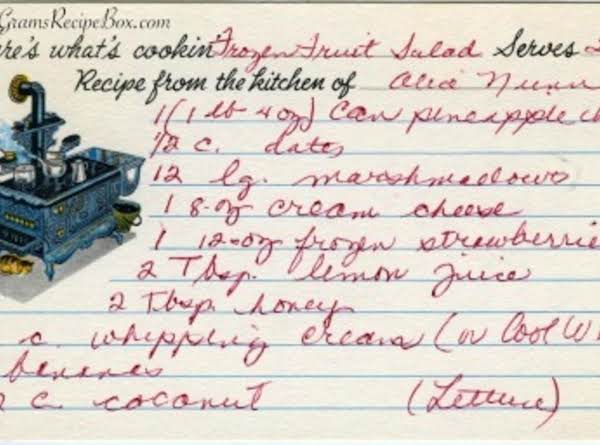 GramsRecipeBox.com
ere's what's cookin' Frozen Fruit Salad Serves
Recipe from the kitchen of
1 (1 lb 4 oz) can pineapple
1/2 c. dates
12 lg. marshmallows
1 8-oz cream cheese
1 12-oz frozen strawberrie
2 Tbsp. lemon juice
2 Tbsp. honey
c. whipping cream (or Cool W
bananas
c. coconut (Lettuce)